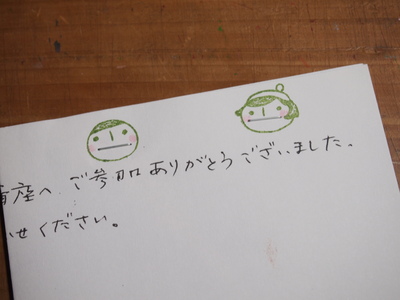 座へ ご参加ありがとうございました。
せください。